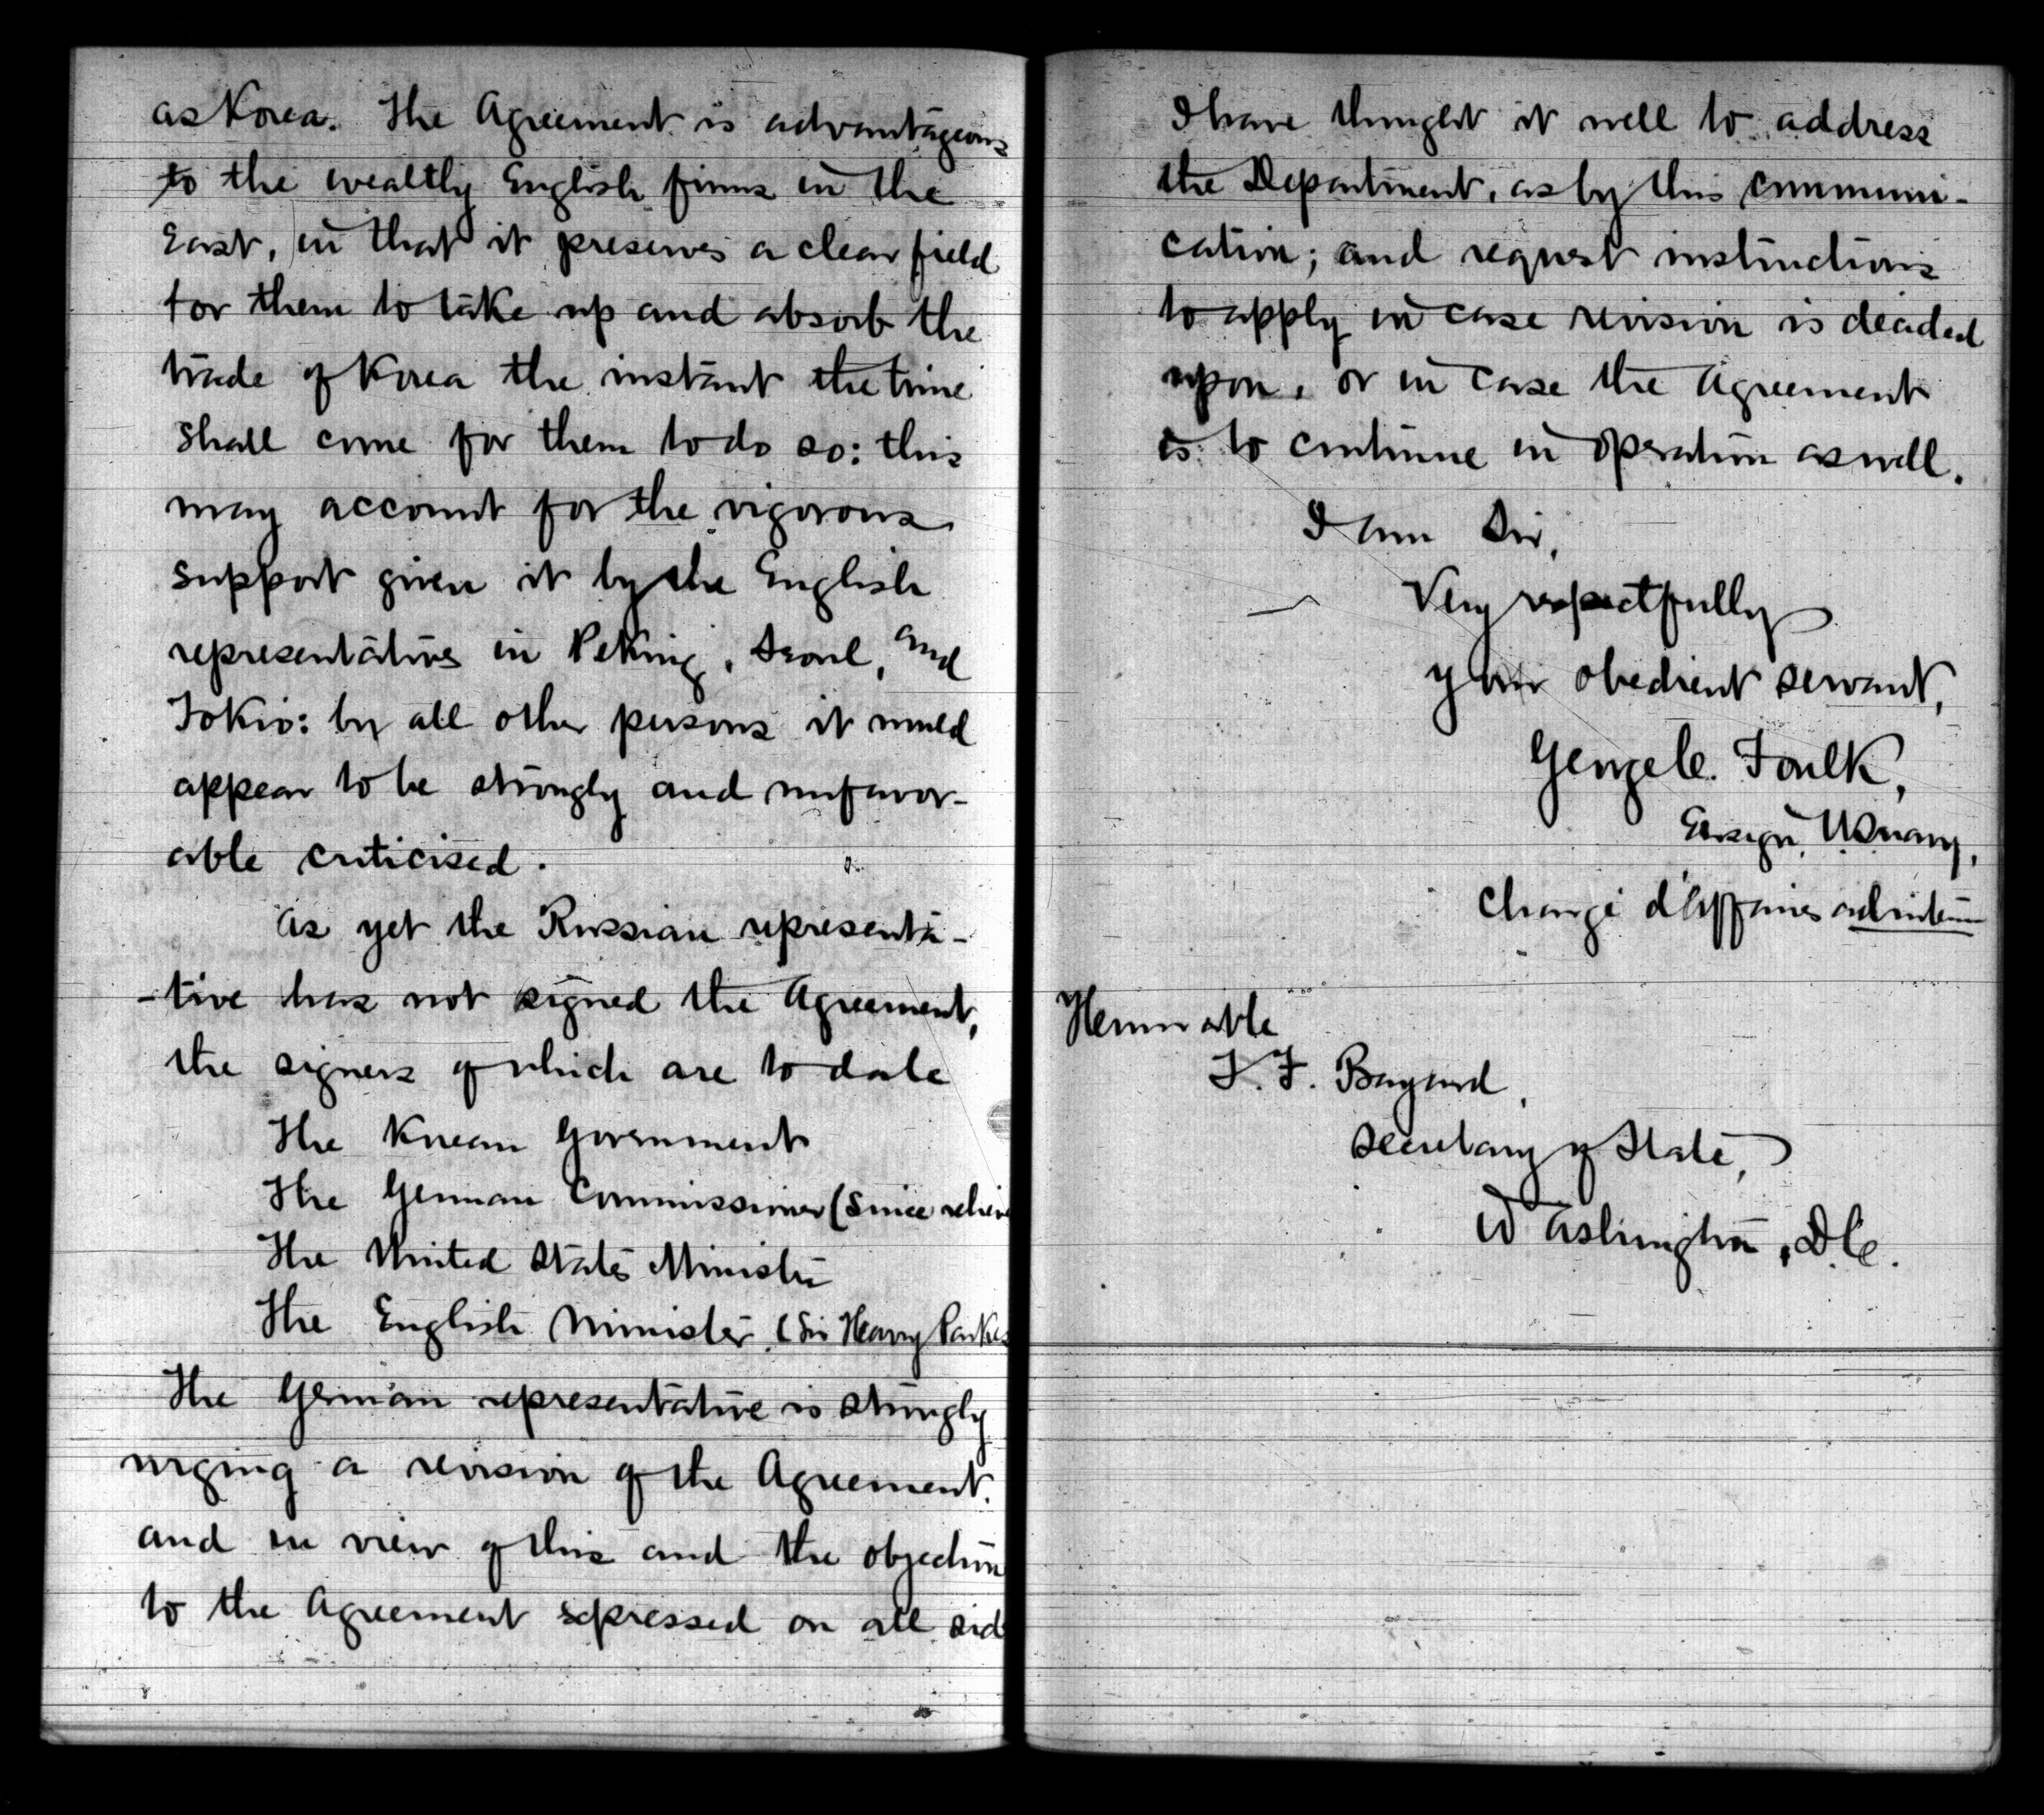 as Korea. The Agreement is advantageous
to the wealthy English firms in the
East, in that it preserves a clear field
for them to take up and absorb the
trade of Korea the instant the time
shall come for them to do so: this
may account for the vigorous
support given it by the English
representatives in Peking, Seoul, and
Tokio: by all other persons it would
appear to be strongly and unfavor-
able criticised.
As yet the Russian representa-
-tive has not signed the Agreement,
the signers of which are to date
The Korean Government
The German Commissioner (Since reliev
The United States Minister
The English Minister (Sir Harry Parkes
The German representative is strongly
urging a revision of the Agreement.
and in view of this and the objection
to the Agreement expressed on all sid
I have thought it well to address
the Department, as by this communi-
cation; and request instructions
to apply in case revision is decided
upon, or in case the Agreement
is to continue in operation as well.
I am Sir,
Very respectfully
your obedient servant,
George C. Foulk,
Ensign, U.S. Navy,
Chargé d'Affaires ad interim
Honorable
T. F. Bayard,
Secretary of State,
Washington, D.C.